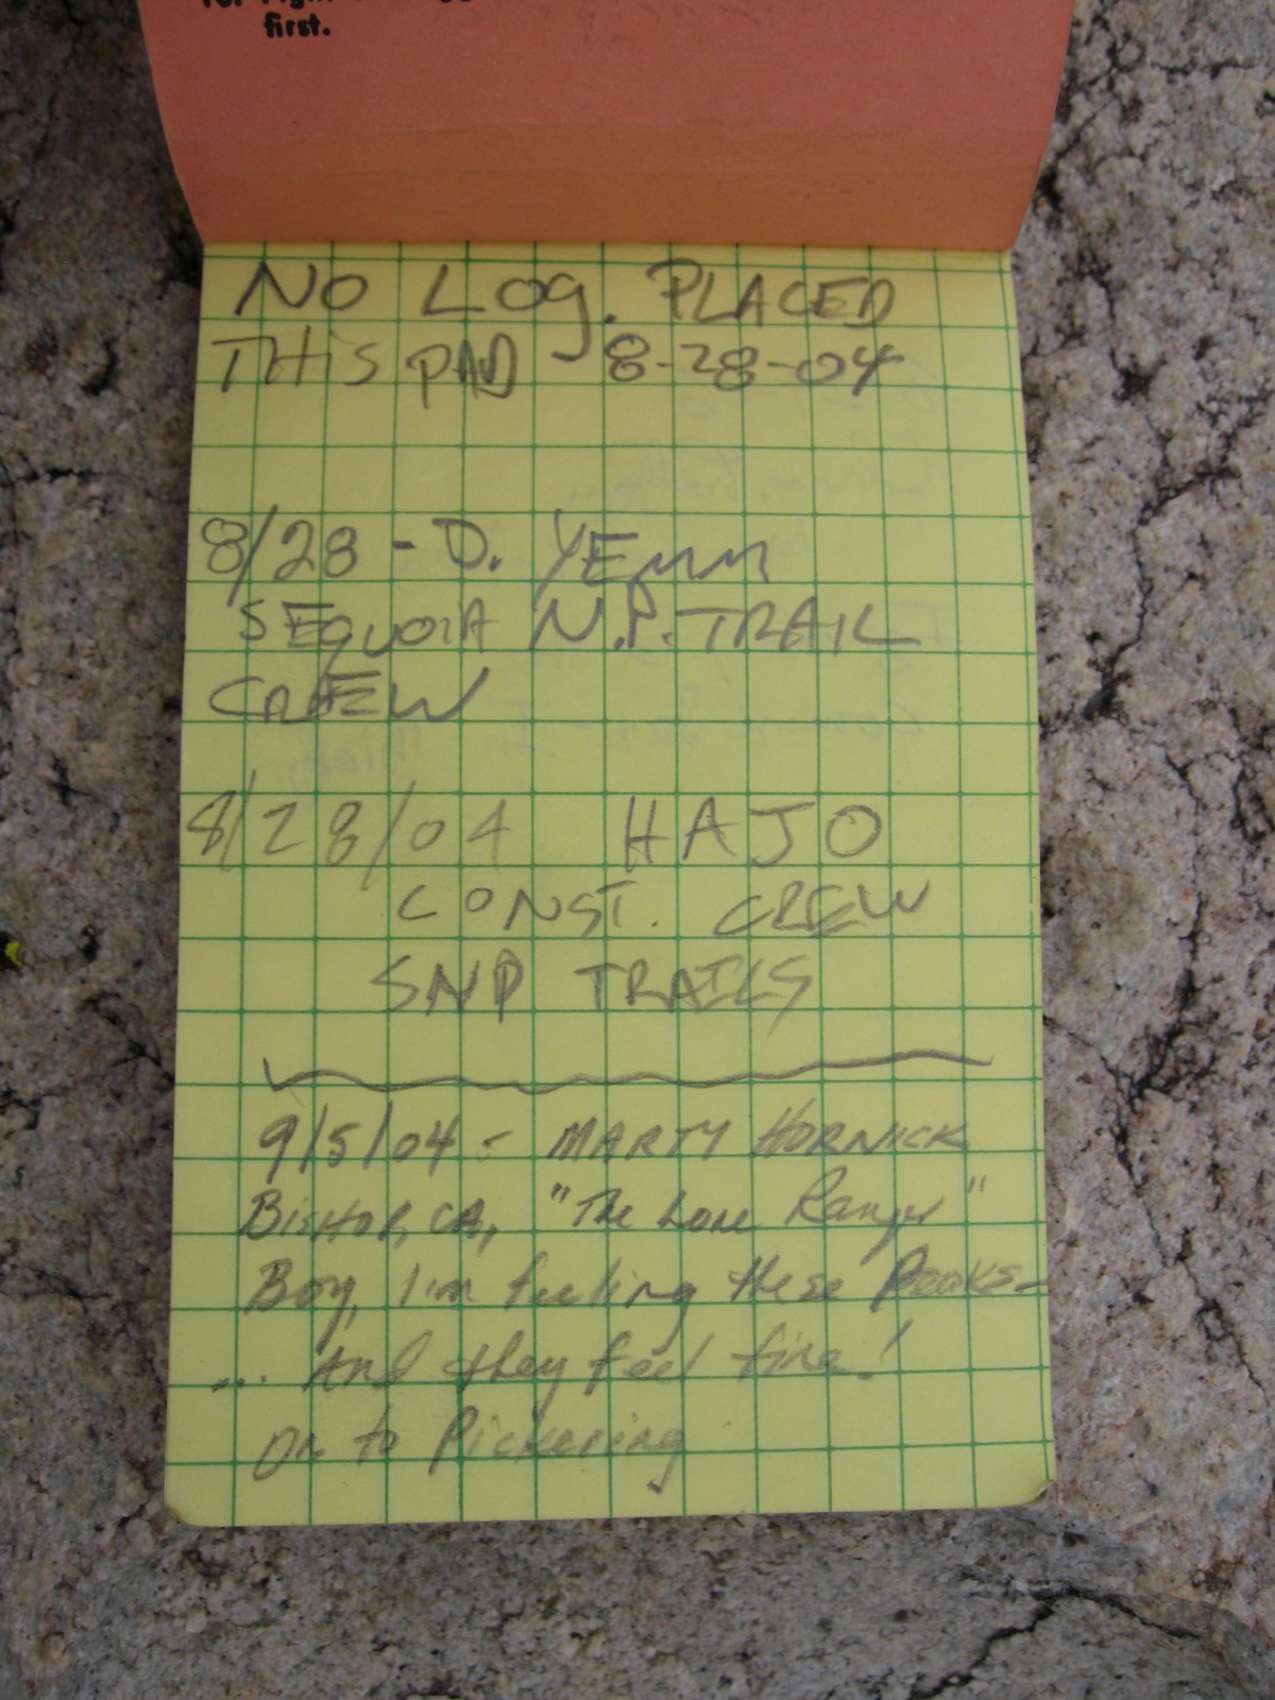 first.
NO LOG. PLACED
THIS PAD 8-28-04
8/28 - D. YEMM
SEQUOIA N.P. TRAIL
CREW
8/28/04 HAJO
CONST. CREW
SNP TRAILS
9/5/04 - MARTY HORNICK
BISHOP, CA, "The Lone Ranger"
Boy, I'm feeling these Peaks-
... And they feel fine!
On to Pickering